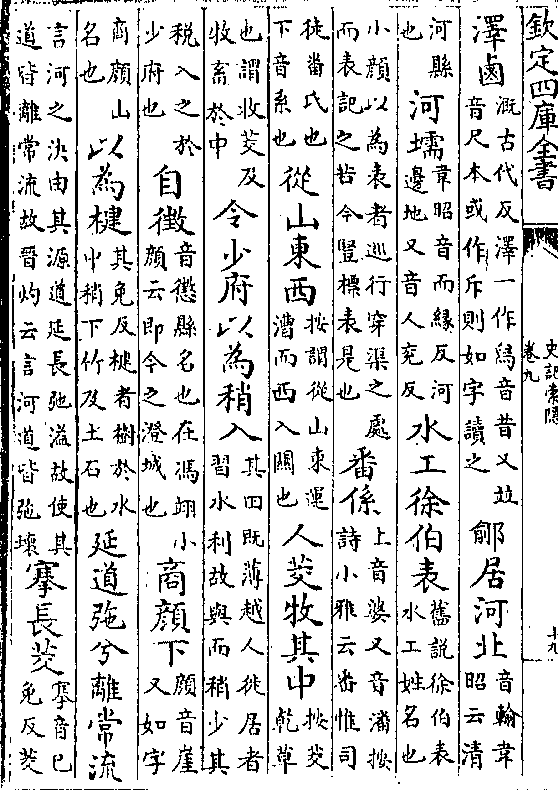 欽定四庫全書
史記索隱
卷九
十九
澤鹵溉古代反澤一作舄音昔又並音尺本或作斥則如字讀之鄃居河北音輸韋昭云清
河縣也河壖韋昭音而緣反河邊地又音人兖反水工徐伯表舊說徐伯表水工姓名也
小顔以為表者巡行穿渠之處而表記之若今豎標表是也番係上音婆又音潘按詩小雅云番惟司
徒番氏也下音系也從山東西按謂從山東運漕而西入關也人茭牧其中按茭乾草
也謂收茭及牧畜於中令少府以為稍入其田既薄越人徙居者習水利故與而稍少其
稅入之於少府也自徵音懲縣名也在馮翊小顔云即今之澄城也商顔下顔音崖又如字
商顔山名也以為楗其免反楗者樹於水中稍下竹及土石也延道弛兮離常流
言河之決由其源道延長弛溢故使其道皆離常流故晉灼云言河道皆弛壞搴長茭搴音己免反茭